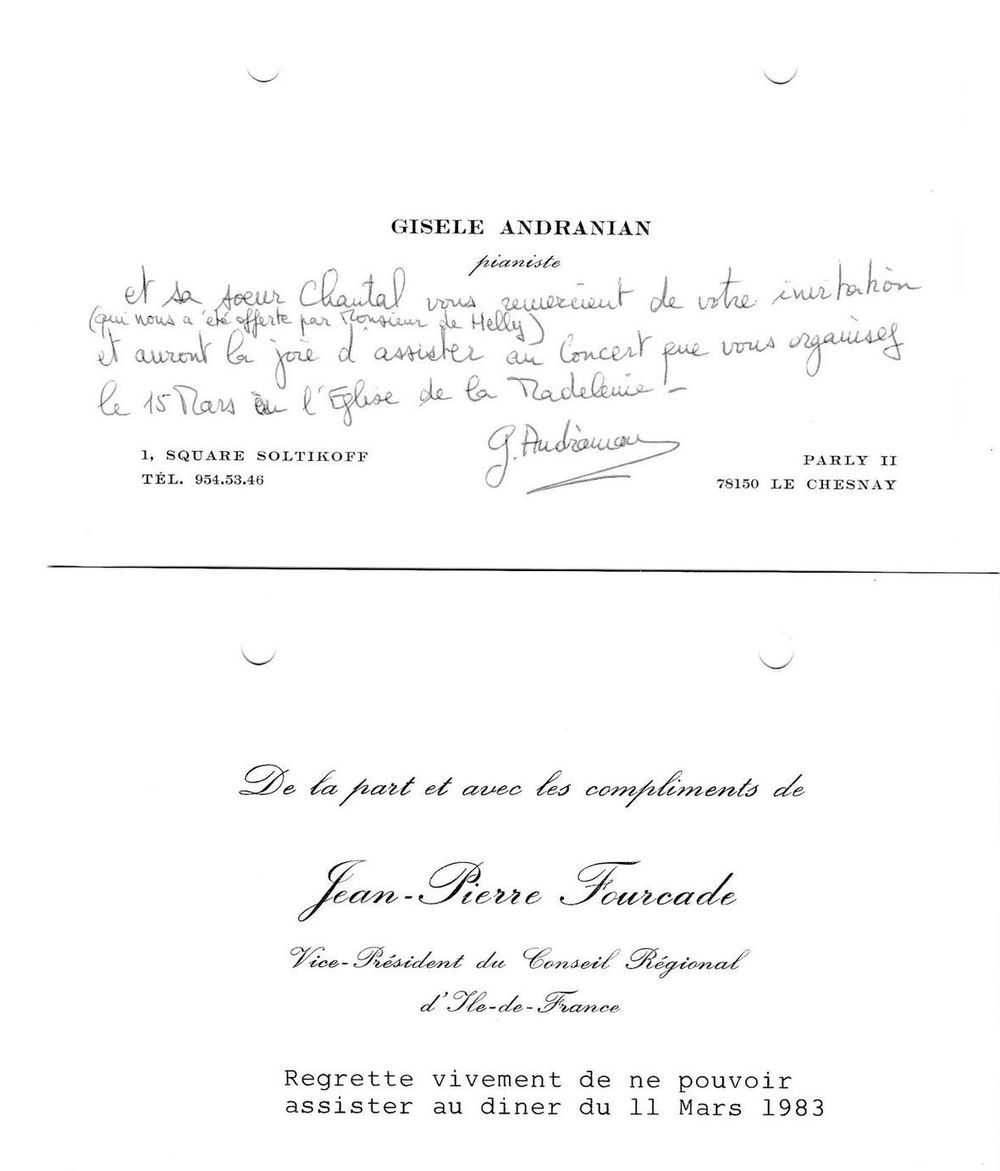 GISELE ANDRANIAN
pianiste
et sa soeur Chantal vous remercient de votre invitation
(qui nous a été offerte par Monsieur de Helly)
et auront la joie d'assister au Concert que vous organisez
le 15 Mars en l'Eglise de la Madeleine -
G. Andranian
1, SQUARE SOLTIKOFF
TÉL. 954.53.46
PARLY II
78150 LE CHESNAY
De la part et avec les compliments de
Jean-Pierre Fourcade
Vice-Président du Conseil Régional
d'Ile-de-France
Regrette vivement de ne pouvoir
assister au diner du 11 Mars 1983